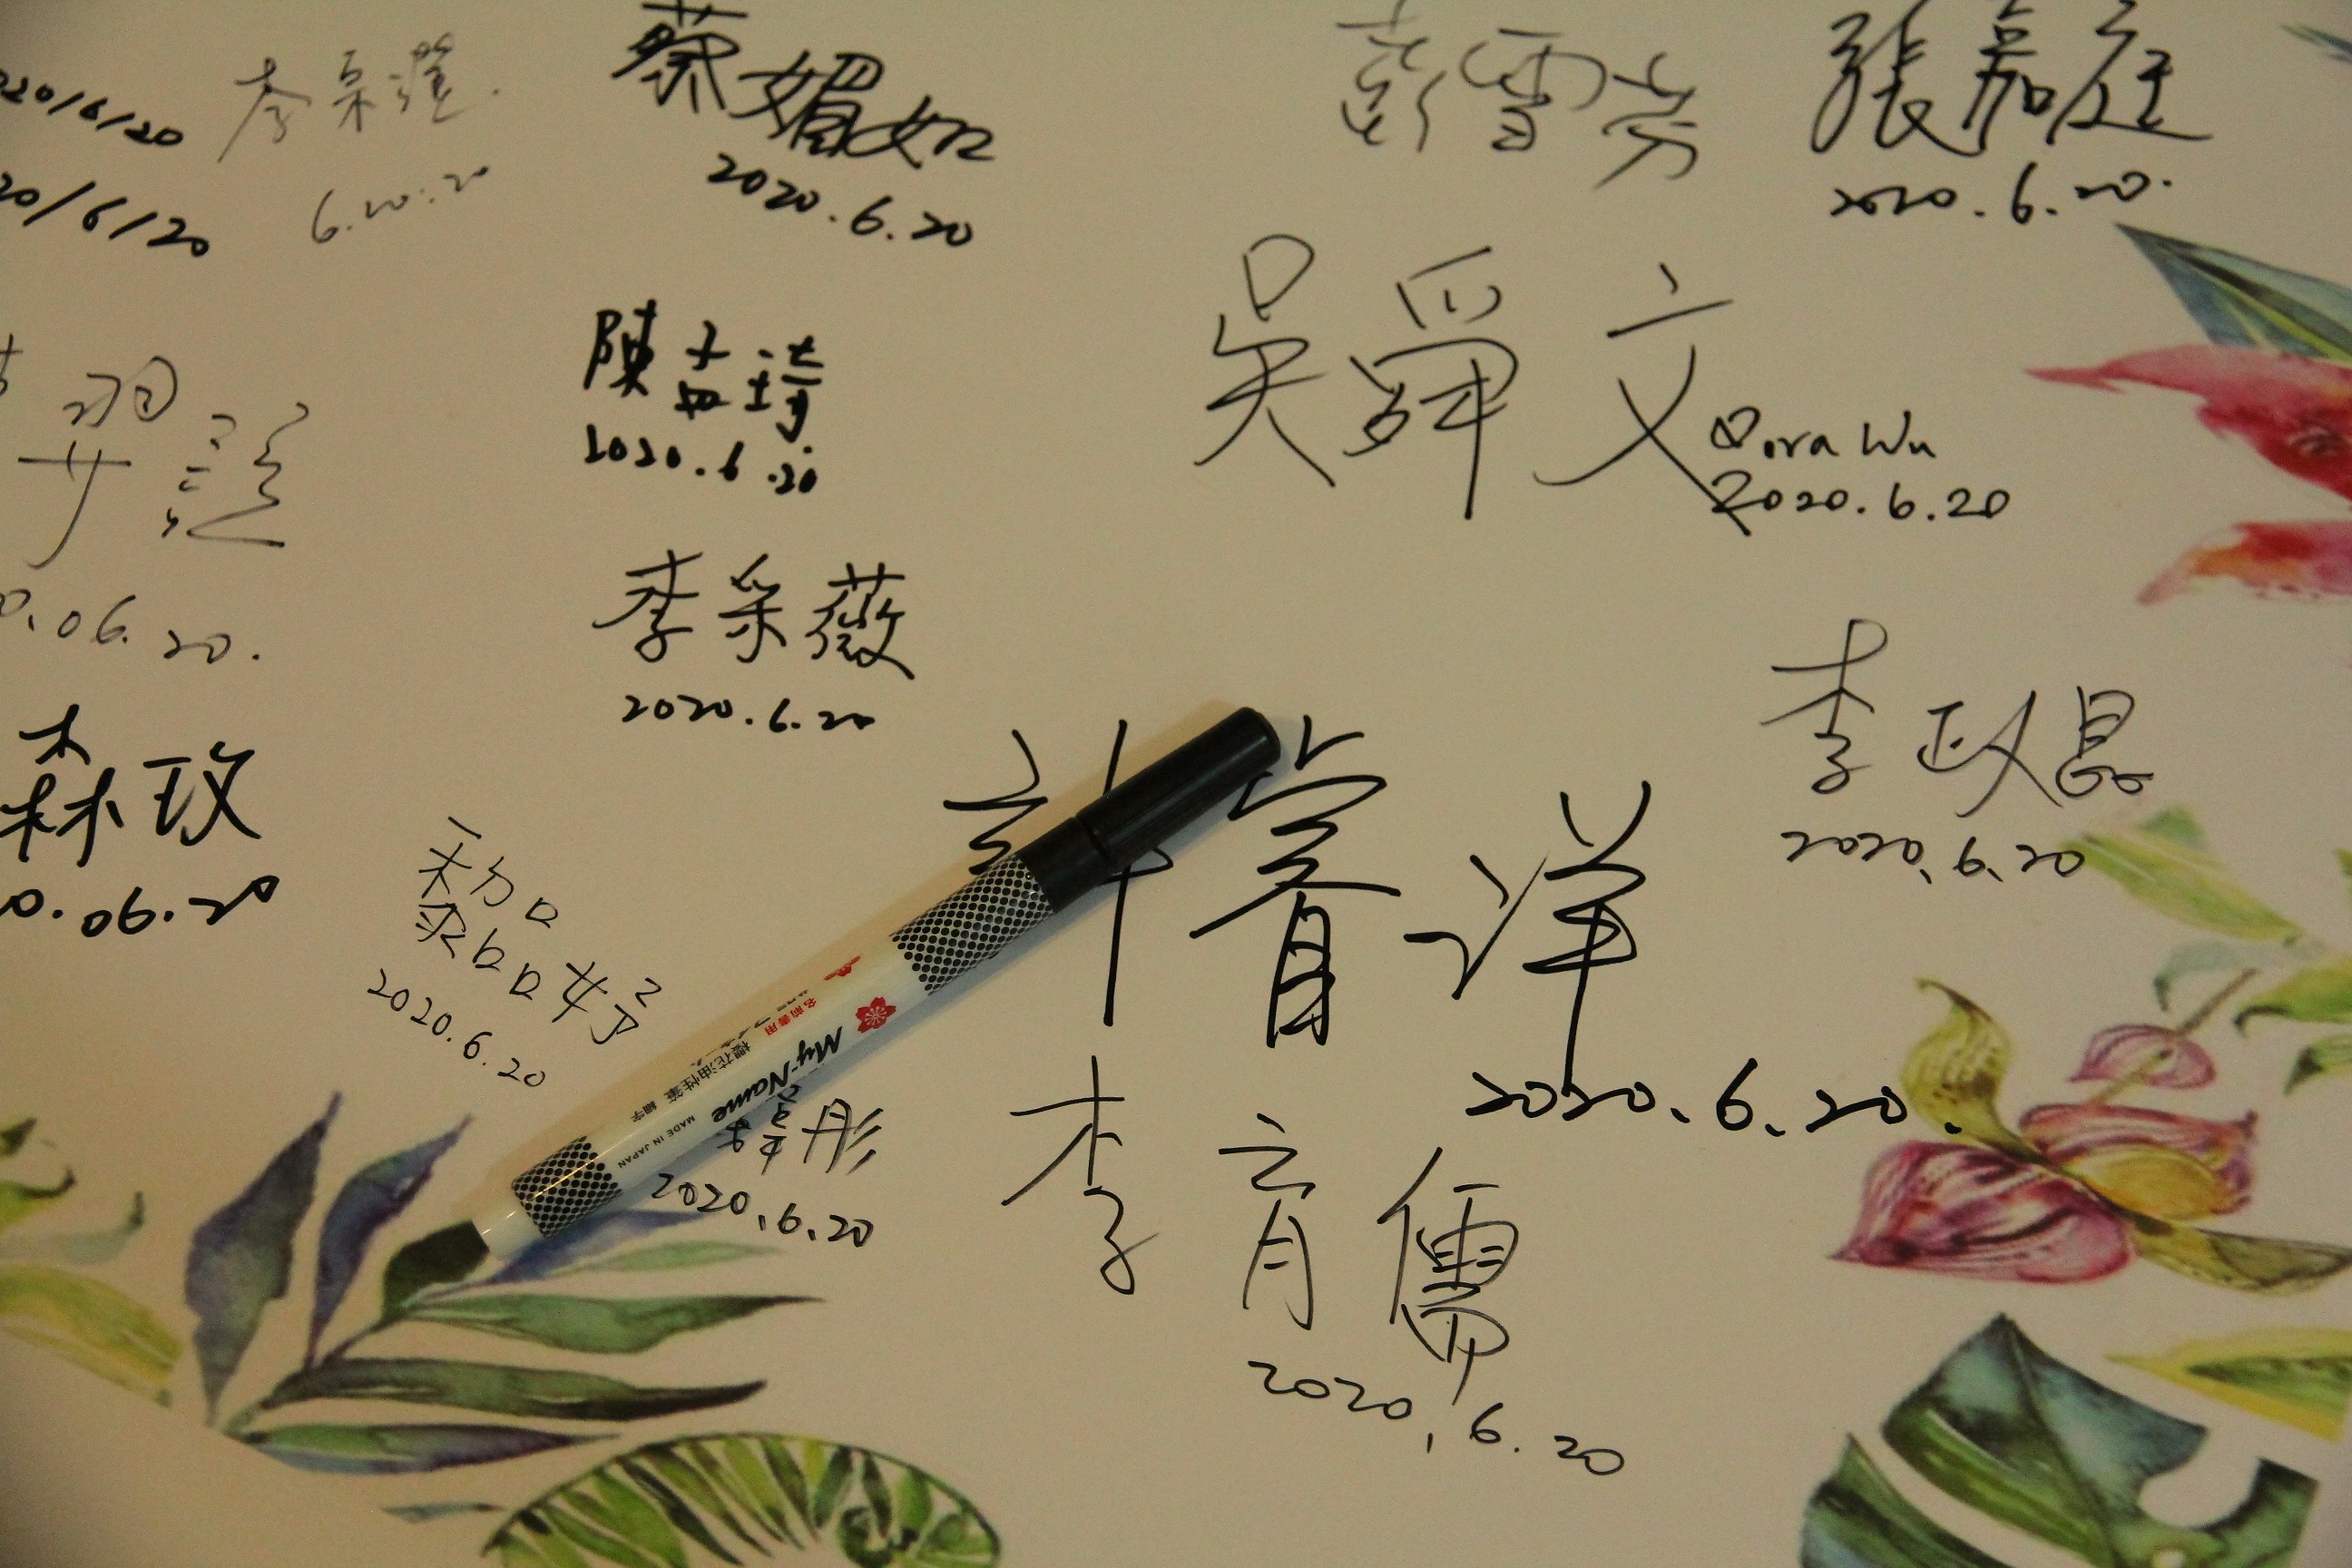 020/6/20
20/6/20
6.20.20
蔡媚如
2020.6.20
彭雪芬
張嘉庭
2020.6.20.
陳孟琦
2020.6.20
吳舜文
Dora Wu
2020.6.20
0.06.20.
李采薇
2020.6.20
李政晨
2020.6.20
森玫
0.06.20
許睿洋
2020.6.20.
2020.6.20
My-Name
櫻花油性筆 細字
名前書用
MADE IN JAPAN
彤
2020.6.20
李育儒
2020.6.20